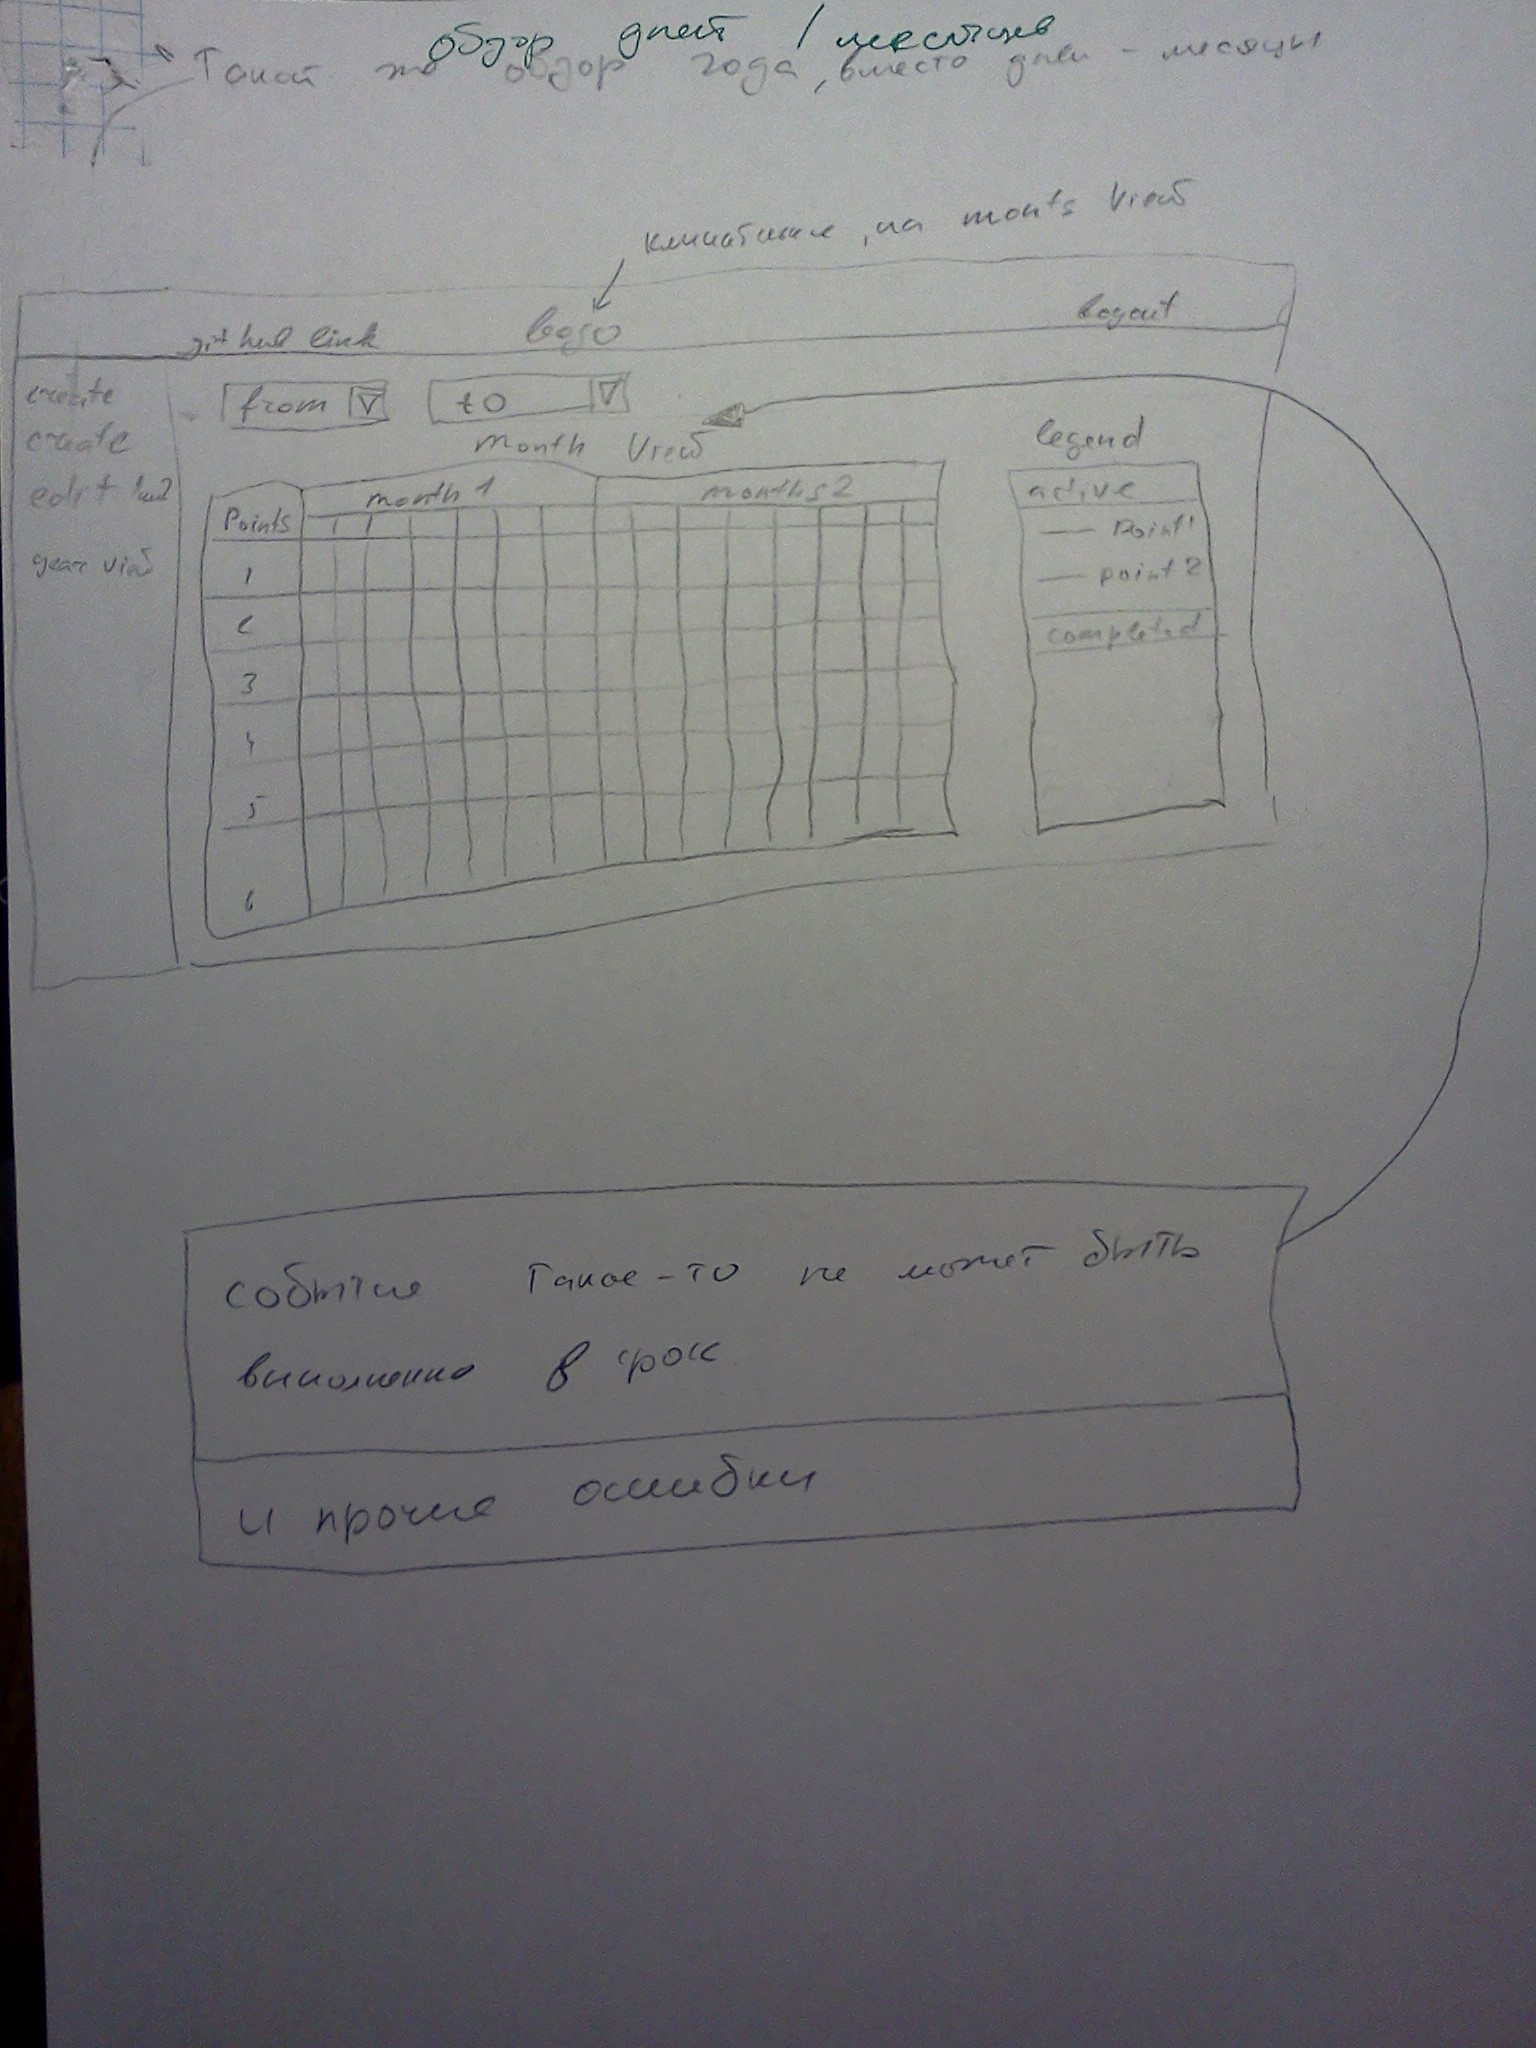 обзор дней / месяцев
Такой же обзор года, вместо дней - месяцы
на monts View
github link logo logout
create
create
edit
year view
from to
Month View
Points month 1 months 2
1
2
3
4
5
6
legend
active
point 1
point 2
completed
событие такое-то не может быть
выполнено в срок
и прочие ошибки